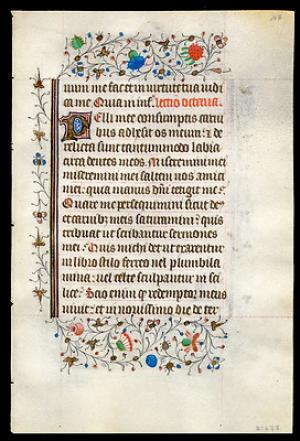 num me fac et in virtute tua iudi
ca me Quia in inf. lectio octava.
Pelli mee consumptis carni
bus adhesit os meum: & de
relicta sunt tantummodo labia
circa dentes meos. Miseremini mei
miseremini mei saltem vos amici
mei: quia manus dni tetigit me.
Quare me persequimini sicut de-
et carnibus meis saturamini? quis
tribuat ut scribantur sermones
mei? Quis michi det ut exarentur
in libro stilo ferreo vel plumbi la
mina: vel celte sculpantur in si
lice? Scio enim q redemptor meus
vivit: et in novissimo die de ter